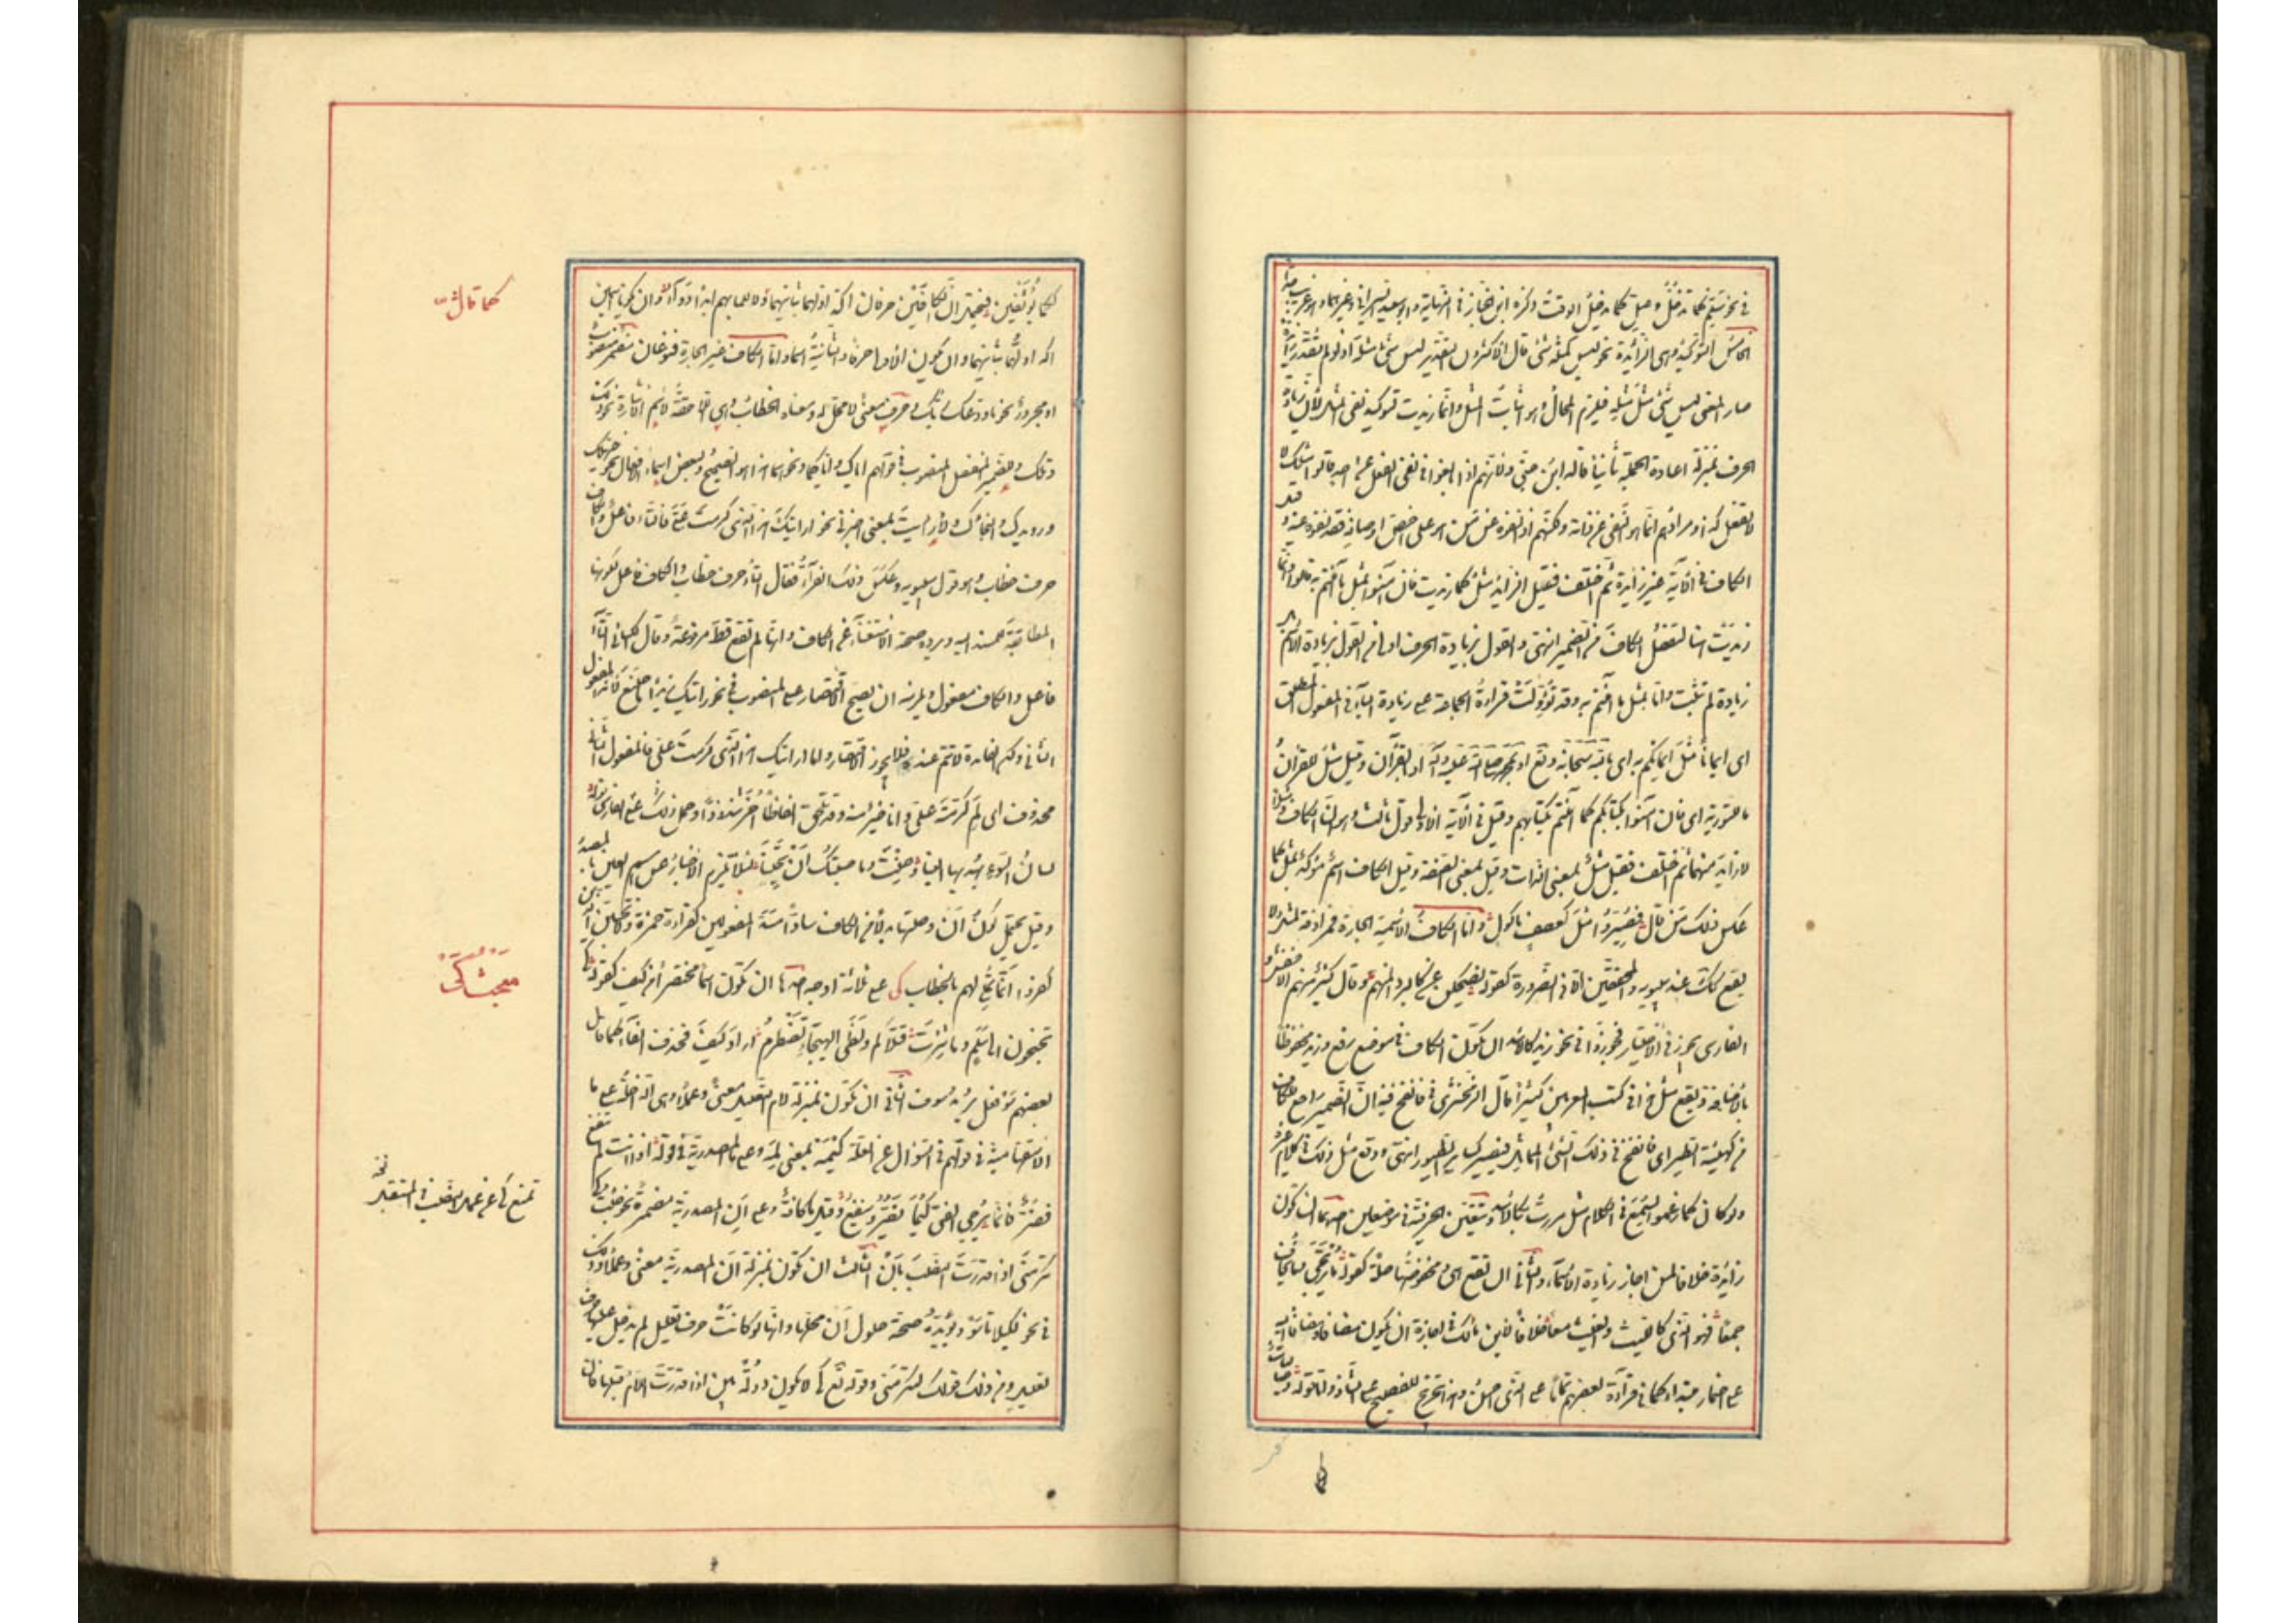 في نحو سلم كما تدخل وصل كما يدخل الوقت ذكره ابن الخباز في النهاية وابو سعيد السيرافي وغيرهما وهو غريب جدا
الخامس التوكيد وهي الزائدة نحو ليس كمثله شئ قال الاكثرون التقدير ليس شئ مثله اذ لو لم تقدر زائدة
صار المعنى ليس شئ مثل مثله فيلزم المحال وهو اثبات المثل وانما زيدت لتوكيد نفي المثل لان زيادة
الحرف بمنزلة اعادة الجملة ثانيا قاله ابن جني ولانهم اذا بالغوا في نفي الفعل عن احد قالوا مثلك لا
يفعل كذا ومرادهم انما هو النفي عن ذاته ولكنهم اذا نفوه عن من هو على اخص اوصافه فقد نفوه عنه و قيل
الكاف في الآية غير زائدة ثم اختلف فقيل الزائد مثل كما زيدت فان آمنوا بمثل ما آمنتم به قالوا وانما
زيدت هنا لتفصل الكاف من الضمير انتهى والقول بزيادة الحرف اولى من القول بزيادة الاسم بل
زيادة لم تثبت واما بمثل ما آمنتم به وقد تؤولت قراءة الجماعة على زيادة الباء في المفعول المطلق
اى ايمانا مثل ايمانكم به اى بالله سبحانه وتع او بمحمد صلى الله عليه وآله او بالقرآن وقيل مثل للقرآن
ما للتورية اى فان آمنوا بكتابكم كما آمنتم بكتابهم وفي الآية الاولى قول ثالث وهو ان الكاف ومثلا
لا زائد منهما ثم اختلف فقيل مثل بمعنى الذات وقيل بمعنى الصفة وقيل الكاف اسم مؤكد بمثل كما
عكس ذلك من قال فصيروا مثل كعصف ماكول واما الكاف الاسمية الجارة فمرادفة لمثل ولا
يقع كذلك عند سيبويه والمحققين الا في الضرورة كقوله يضحكن عن كالبرد المنهم وقال كثير منهم الاخفش و
الفارسى يجوز في الاختيار فجوزوا في نحو زيد كالاسد ان تكون الكاف في موضع رفع وزيد مخفوضا
بالاضافة ويقع مثل هذا في كتب المعربين كثيرا قال الزمخشرى في فانفخ فيه ان الضمير راجع للكاف
من كهيئة الطير اى فانفخ في ذلك الشئ المماثل فيصير كسائر الطيور انتهى ووقع مثل ذلك في كلام غيره
ولو كان كما زعموا لسمع في الكلام مثل مررت بكالاسد وتتعين الحرفية في موضعين احدهما ان تكون
زائدة خلافا لمن اجاز زيادة الاسماء والثاني ان تقع هى ومخفوضها صلة كقوله ما يرتجى وما يخاف
جمعا فهو الذى كالليث والغيث معا خلافا لابن مالك في اجازة ان يكون مضافا ومضافا اليه
على اضمار مبتدا كما في قراءة بعضهم تماما على الذى احسن وهذا تخريج للفصيح على الشاذ واما قوله وصاليات
ككما يؤثفين فيحتمل ان الكافين حرفان اكد اولهما بثانيهما ولا للما بهم ابدا دواء وان تكونا اسمين
اكد اولهما بثانيهما وان تكون الاولى حرفا والثانية اسما واما الكاف غير الجارة فنوعان مضمر منصوب
او مجرور نحو ما ودعك ربك وحرف معنى لا محل له ومعناه الخطاب وهي اللاحقة لاسم الاشارة نحو ذلك
وتلك وللضمير المنفصل المنصوب في قولهم اياك واياكما ونحوهما هذا هو الصحيح ولبعض اسماء الافعال نحو حيهلك
ورويدك والنجاءك ولارايت بمعنى اخبرني نحو ارايتك هذا الذى كرمت علي فالتاء فاعل والكاف
حرف خطاب هو قول سيبويه وعكس ذلك الفراء فقال التاء حرف خطاب والكاف فاعل لكونها
المطابقة للمسند اليه ويرده صحة الاستغناء عن الكاف وانها لم تقع قط مرفوعة وقال الكسائي التاء
فاعل والكاف مفعول ويلزمه ان يصح الاقتصار على المنصوب في نحو ارايتك زيدا ما صنع لانه المفعول
الثاني ولكن الفائدة لا تتم عنده فلا يجوز الاقتصار واما ارايتك هذا الذى كرمت علي فالمفعول الثاني
محذوف اى لم كرمته علي وانا خير منه وقد تلحق الفاظا اخر شذوذا وحمل ذلك على الفارسى قوله
لسان السوء تهديها الينا وحنت وما حسبتك ان تحينا لئلا يلزم الاخبار عن اسم العين بالمصدر
وقيل يحتمل كون ان وصلتها بدلا من الكاف سادا مسد المفعولين كقراءة حمزة ولا تحسبن الذين
كفروا انما نملي لهم بالخطاب كى على ثلاثة اوجه احدها ان تكون اسما مختصرا من كيف كقوله كى
تجنحون الى سلم وما ثئرت قتلاكم ولظى الهيجاء تضطرم اراد كيف فحذف الفاء كما قال
بعضهم سو افعل يريد سوف الثاني ان تكون بمنزلة لام التعليل معنى وعملا وهى الداخلة على ما
الاستفهامية في قولهم في السؤال عن العلة كيمه بمعنى لمه وعلى ما المصدرية في قوله اذا انت لم تنفع
فضر فانما يرجى الفتى كيما يضر وينفع وقيل ما كافة وعلى ان المصدرية مضمرة نحو جئتك كى
تكرمني اذا قدرت النصب بان الثالث ان تكون بمنزلة ان المصدرية معنى وعملا وذلك
في نحو لكيلا تاسوا ويؤيده صحة حلول ان محلها وانها لو كانت حرف تعليل لم يدخل عليها حرف
تعليل ومن ذلك قولك لتكرمني وقوله تع كى لا يكون دولة بين اذا قدرت اللام قبلها فان
كما قال
مبحث كى
تمنع كى عن عملا لنصب في المستقبل